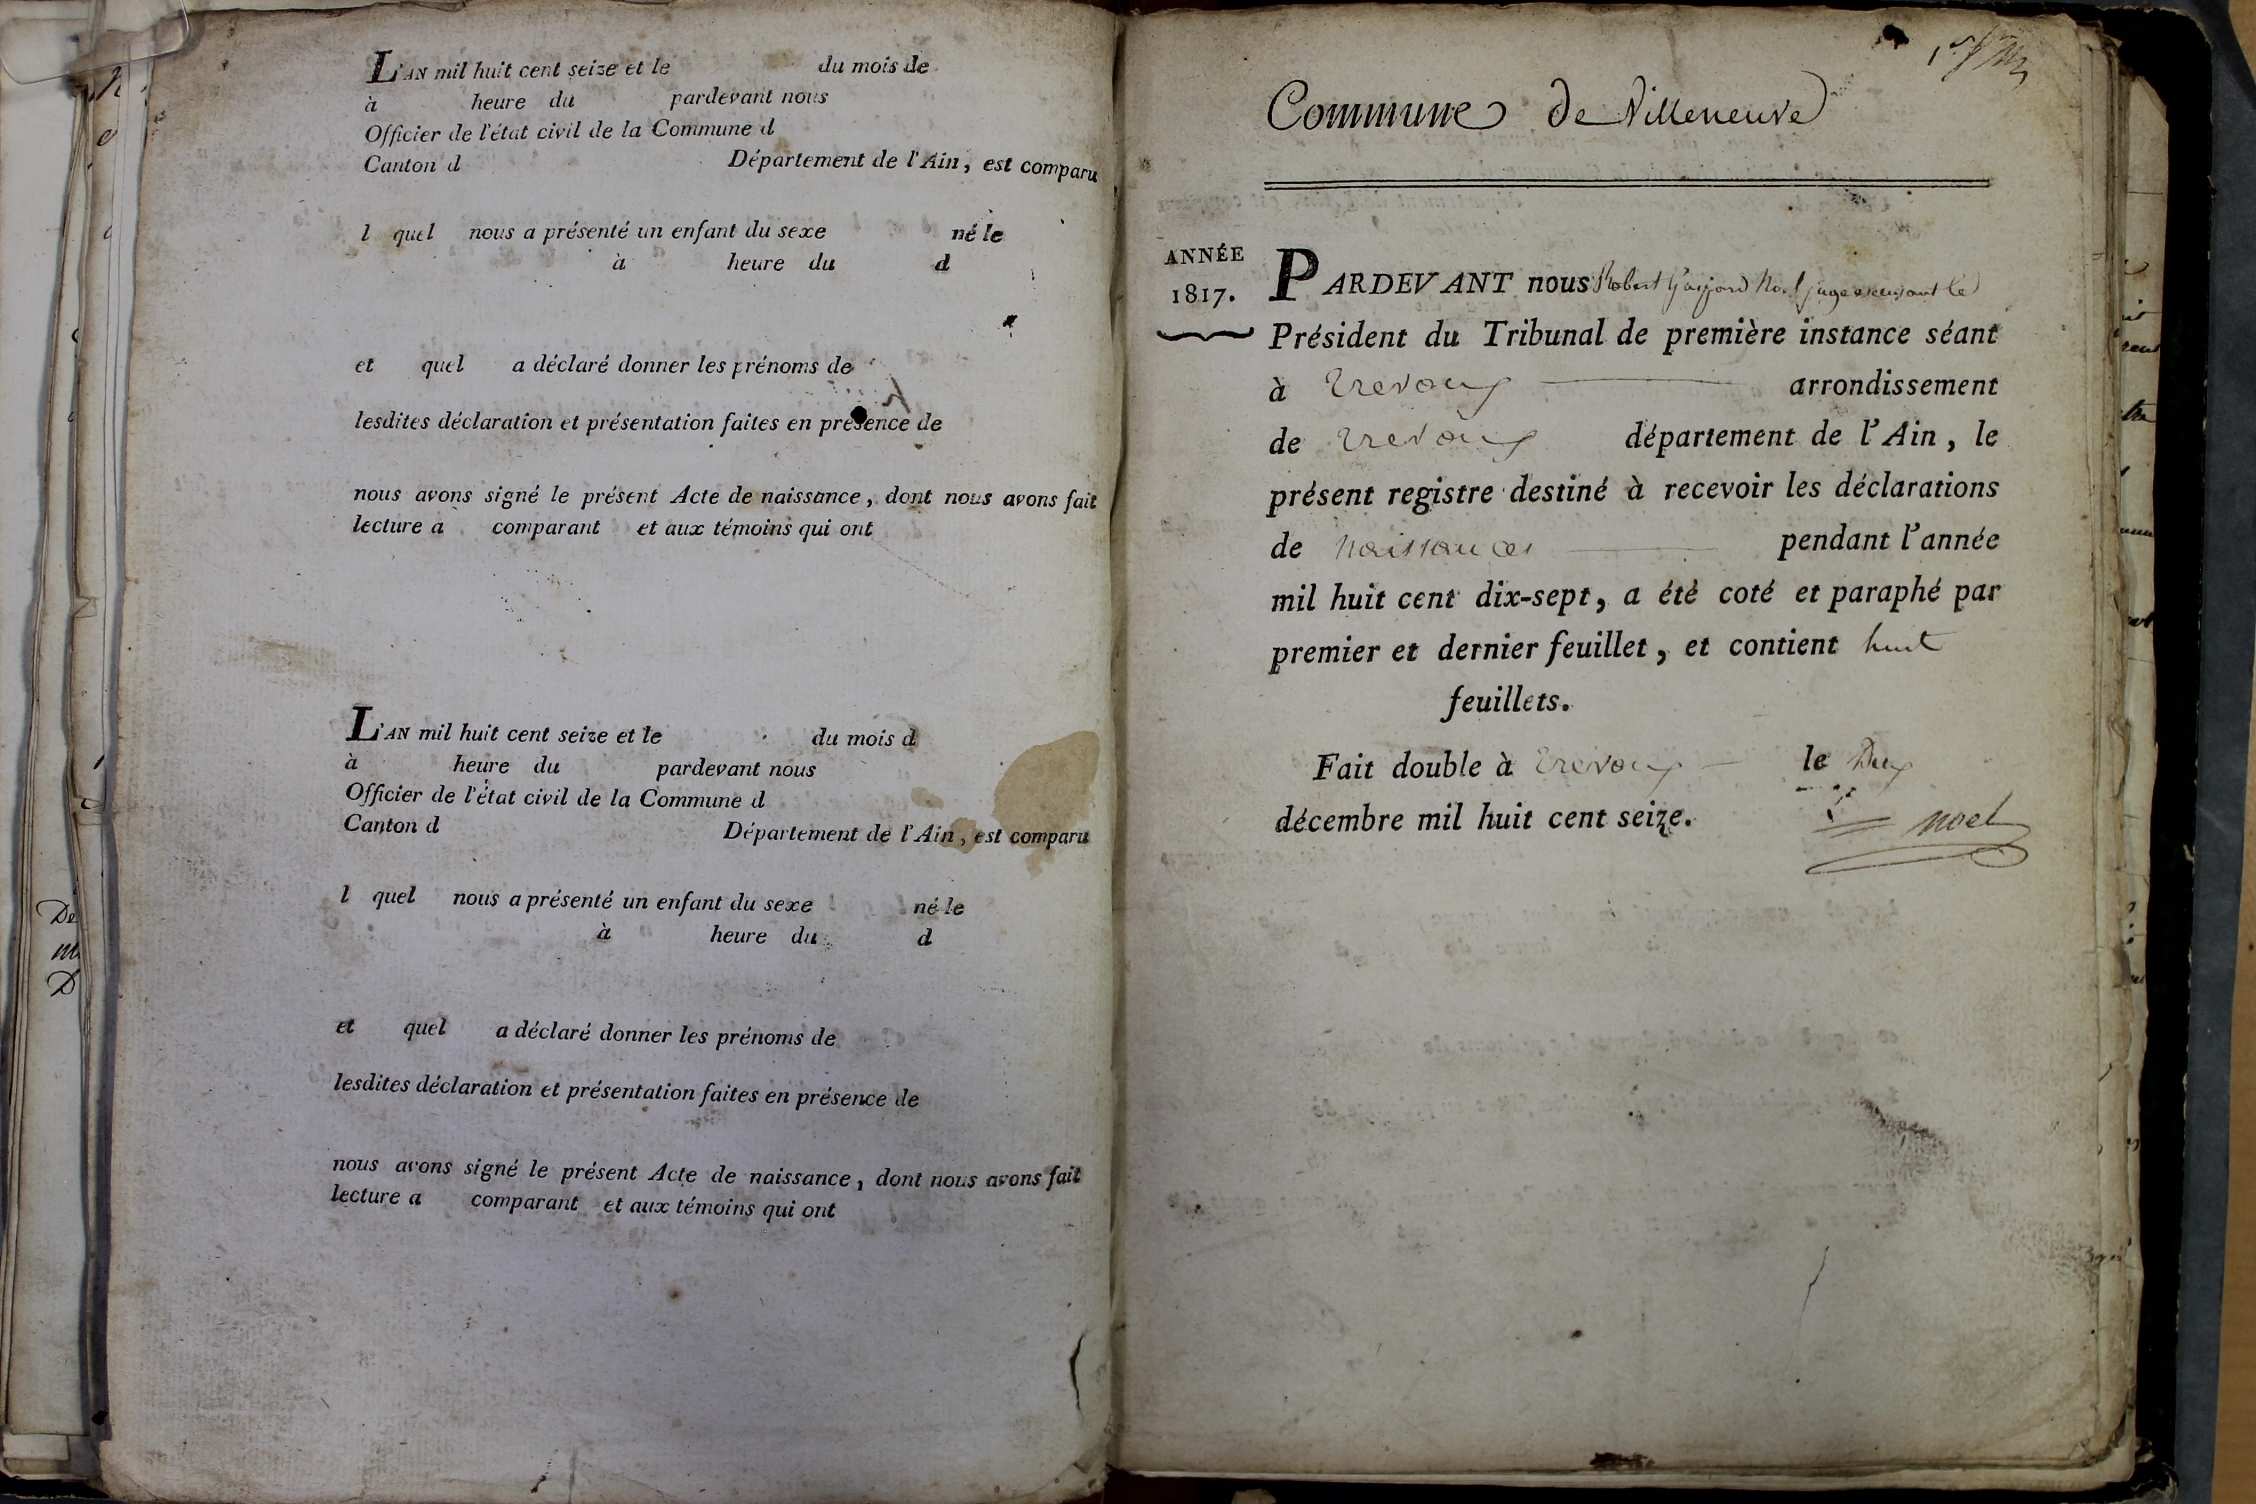 L'AN mil huit cent seize et le du mois de
à heure du pardevant nous
Officier de l'état civil de la Commune d
Canton d Département de l'Ain, est comparu
l quel nous a présenté un enfant du sexe né le
à heure du d
et quel a déclaré donner les prénoms de
lesdites déclaration et présentation faites en présence de
nous avons signé le présent Acte de naissance, dont nous avons fait
lecture a comparant et aux témoins qui ont
L'AN mil huit cent seize et le du mois d
à heure du pardevant nous
Officier de l'état civil de la Commune d
Canton d Département de l'Ain, est comparu
l quel nous a présenté un enfant du sexe né le
à heure du d
et quel a déclaré donner les prénoms de
lesdites déclaration et présentation faites en présence de
nous avons signé le présent Acte de naissance, dont nous avons fait
lecture a comparant et aux témoins qui ont
Commune de Villeneuve
ANNÉE
1817.
PARDEVANT nous Robert Noel juge
Président du Tribunal de première instance séant
à Trevoux arrondissement
de Trevoux département de l'Ain, le
présent registre destiné à recevoir les déclarations
de naissances pendant l'année
mil huit cent dix-sept, a été coté et paraphé par
premier et dernier feuillet, et contient huit
feuillets.
Fait double à Trevoux le Deux
décembre mil huit cent seize.
Noel